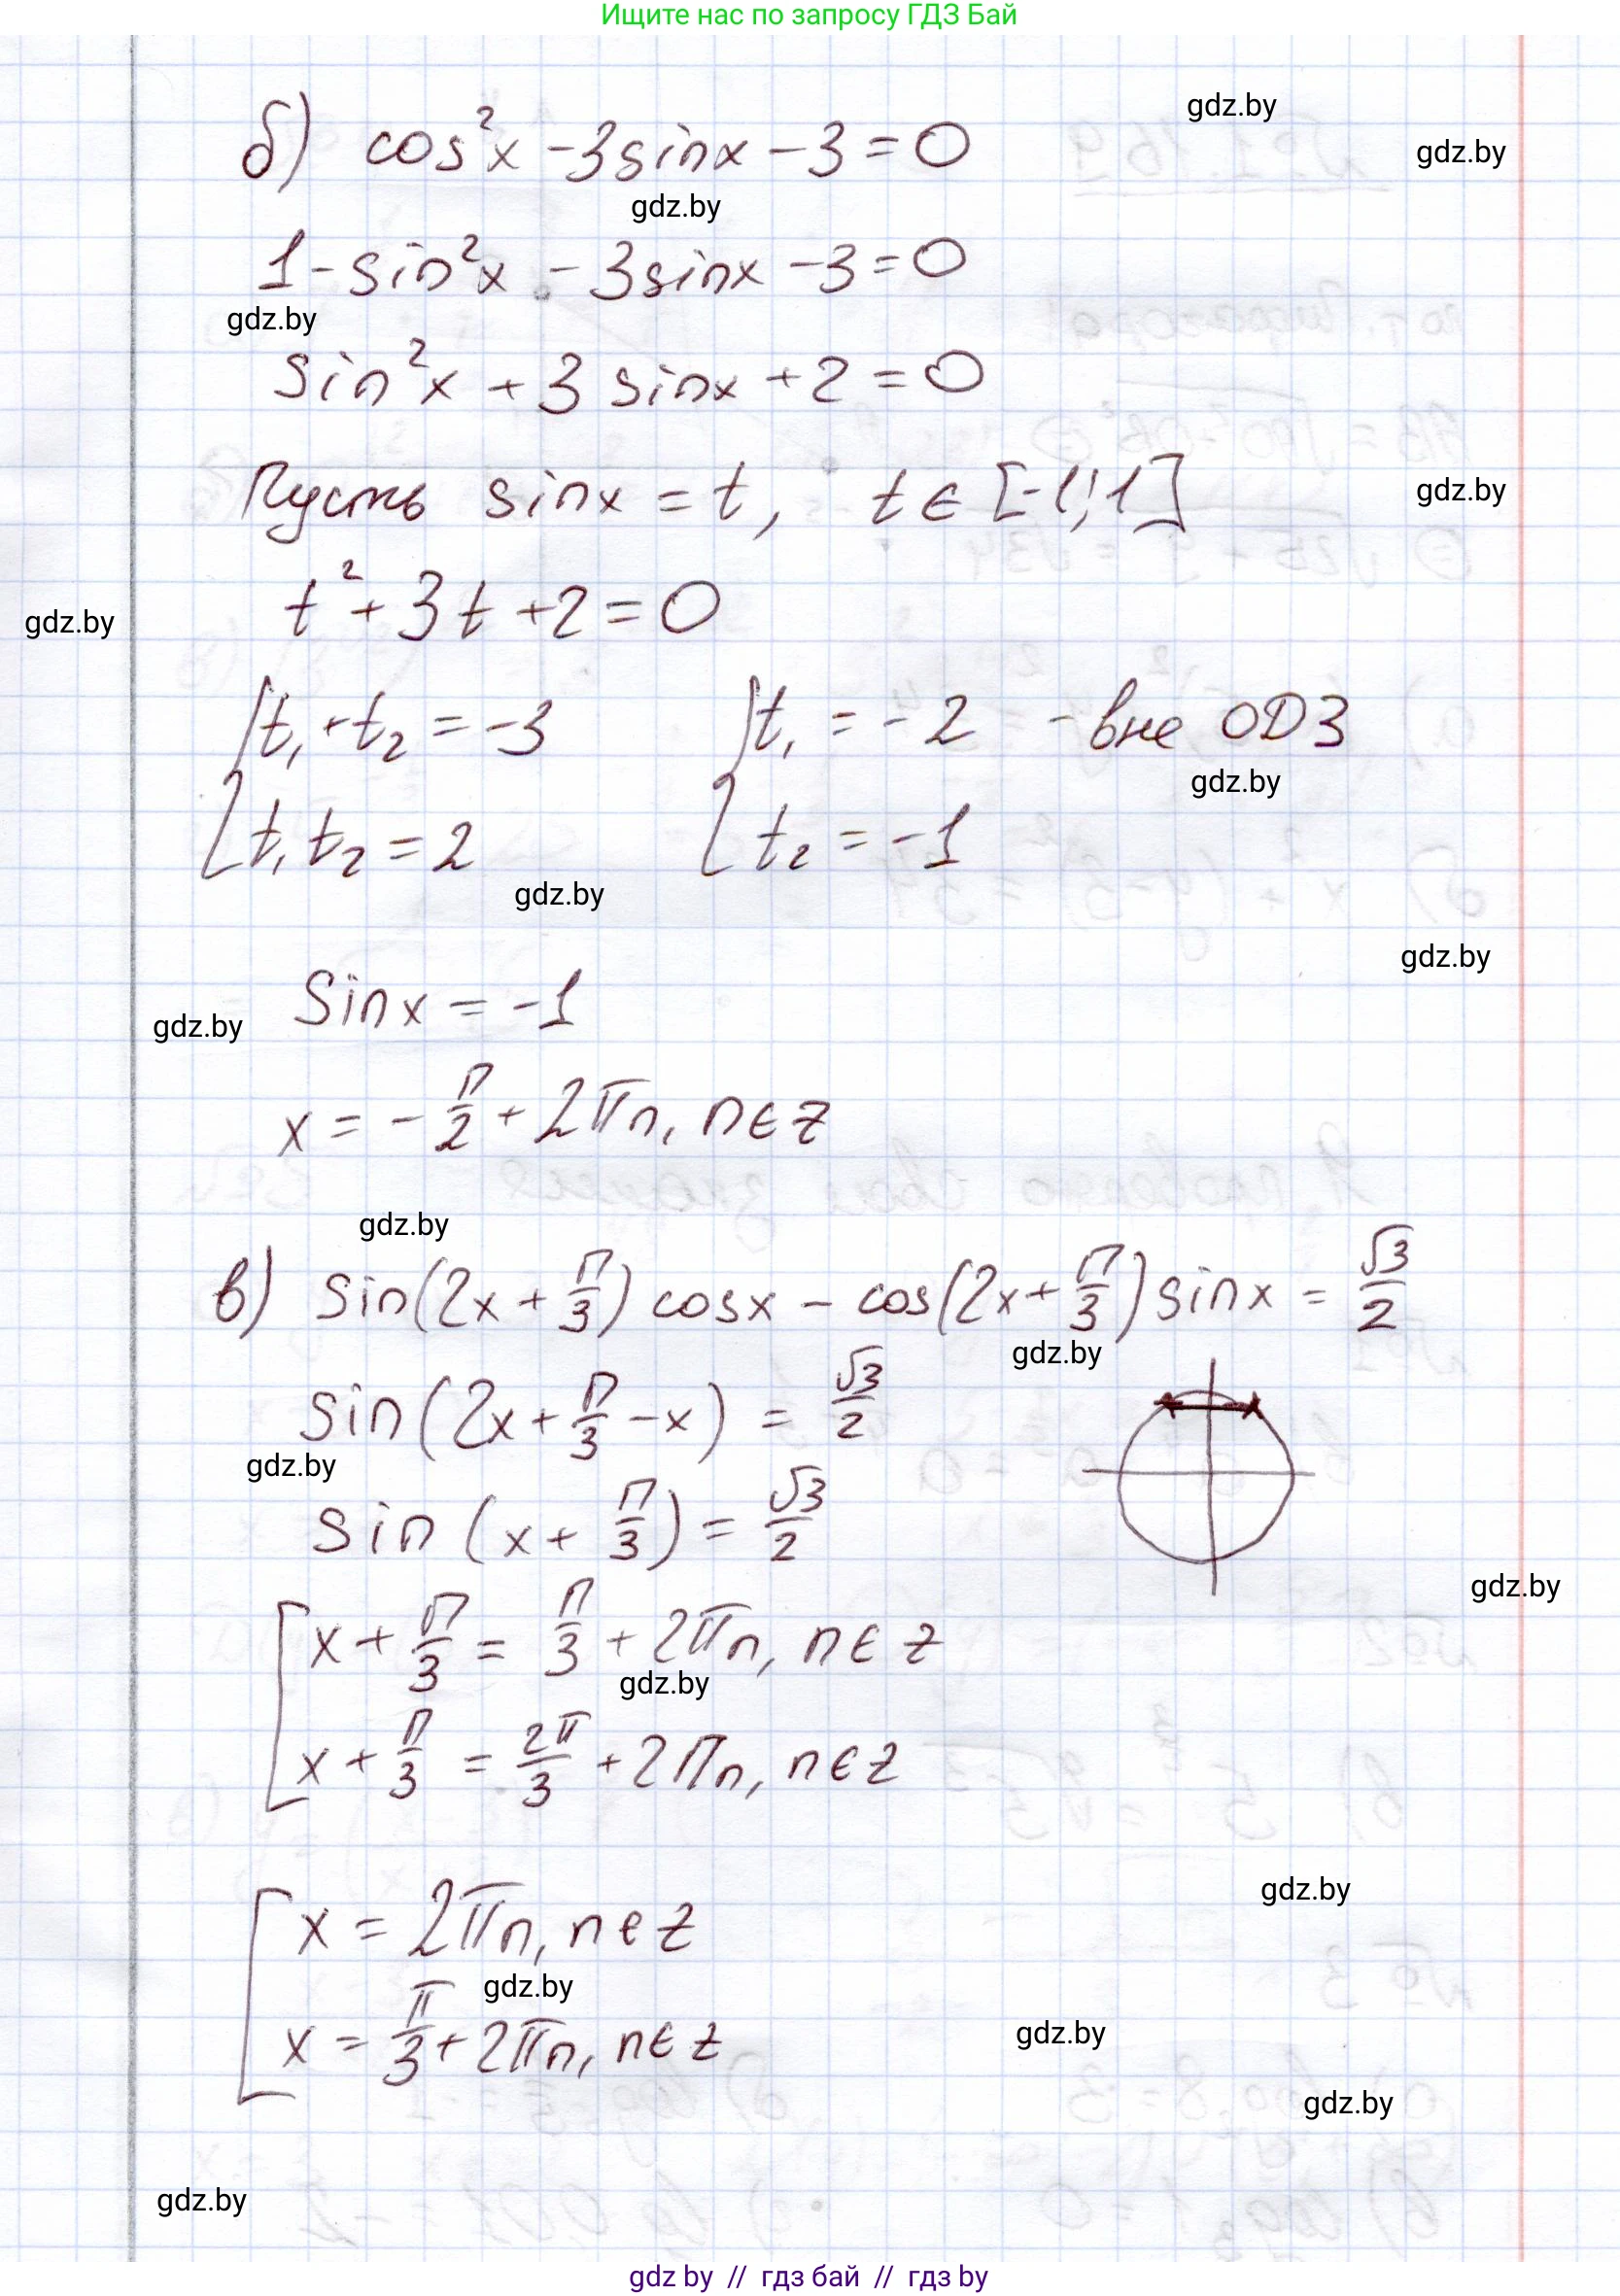 Ищите нас по запросу ГДЗ Бай
gdz.by
б) cos²x - 3sinx - 3 = 0
gdz.by
gdz.by
1 - sin²x - 3sinx - 3 = 0
gdz.by
sin²x + 3 sinx + 2 = 0
Пусть sinx = t, t ∈ [-1; 1]
gdz.by
t² + 3t + 2 = 0
gdz.by
t₁ + t₂ = -3 t₁ = -2 - вне ОДЗ
gdz.by
t₁ t₂ = 2 t₂ = -1
gdz.by
gdz.by
Sinx = -1
gdz.by
x = - π/2 + 2πn, n ∈ z
gdz.by
в) sin(2x + π/3) cosx - cos(2x + π/3) sinx = √3/2
gdz.by
sin(2x + π/3 - x) = √3/2
gdz.by
sin (x + π/3) = √3/2
gdz.by
x + π/3 = π/3 + 2πn, n ∈ z
gdz.by
x + π/3 = 2π/3 + 2πn, n ∈ z
gdz.by
x = 2πn, n ∈ z
gdz.by
x = π/3 + 2πn, n ∈ z
gdz.by
gdz.by
gdz.by
gdz by // гдз бай // гдз by